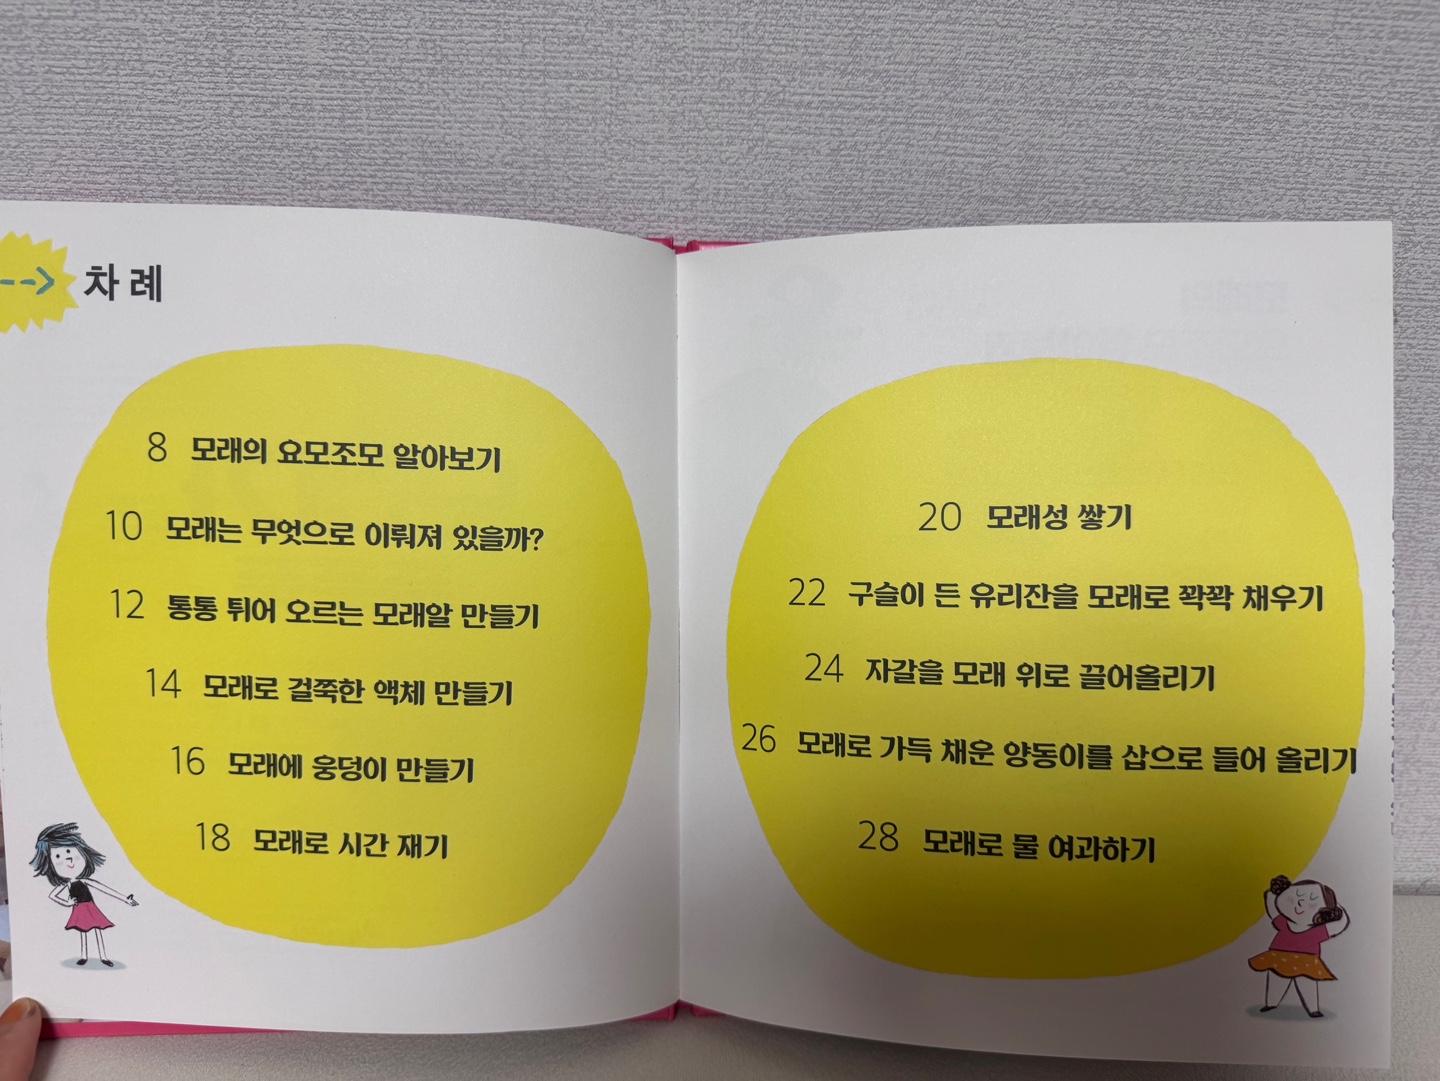 차례
8 모래의 요모조모 알아보기
10 모래는 무엇으로 이뤄져 있을까?
12 통통 튀어 오르는 모래알 만들기
14 모래로 걸쭉한 액체 만들기
16 모래에 웅덩이 만들기
18 모래로 시간 재기
20 모래성 쌓기
22 구슬이 든 유리잔을 모래로 꽉꽉 채우기
24 자갈을 모래 위로 끌어올리기
26 모래로 가득 채운 양동이를 삽으로 들어 올리기
28 모래로 물 여과하기